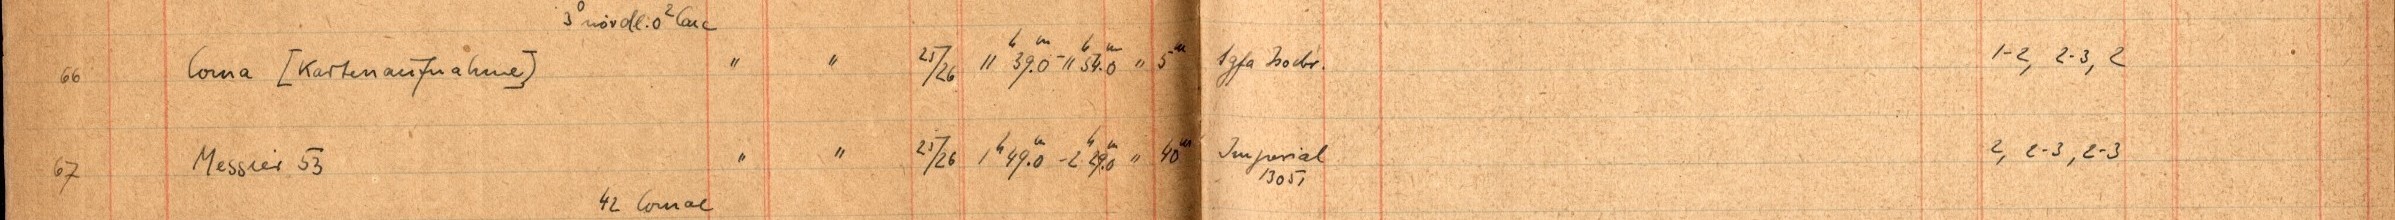 3° nördl. o² Canc
66 Coma [Kartenaufnahme] " " 25/26 11ʰ 39.0ᵐ - 11ʰ 54.0ᵐ " 5ᵐ Agfa Isochr. 1-2, 2-3, 2
67 Messier 53 " " 25/26 1ʰ 49.0ᵐ - 2ʰ 29.0ᵐ " 40ᵐ Imperial 2, 2-3, 2-3
1305
42 Comae